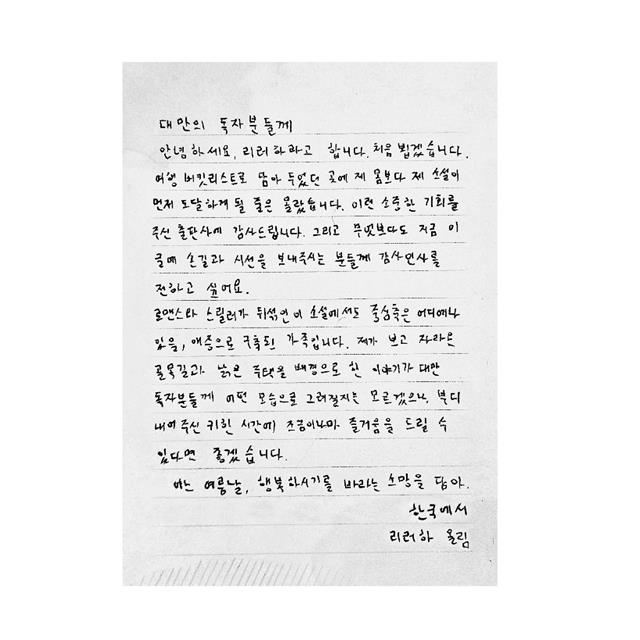 대만의 독자분들께
안녕하세요, 리러하라고 합니다. 처음 뵙겠습니다.
여행 버킷리스트로 담아 두었던 곳에 제 몸보다 제 소설이
먼저 도달하게 될 줄은 몰랐습니다. 이런 소중한 기회를
주신 출판사에 감사드립니다. 그리고 무엇보다도 지금 이
글에 손길과 시선을 보내주시는 분들께 감사인사를
전하고 싶어요.
로맨스와 스릴러가 뒤섞인 이 소설에서도 중심축은 어디에나
있을, 애증으로 구축된 가족입니다. 제가 보고 자라온
골목길과 낡은 주택을 배경으로 한 이야기가 대만
독자분들께 어떤 모습으로 그려질지는 모르겠으나, 부디
내어 주신 귀한 시간에 조금이나마 즐거움을 드릴 수
있다면 좋겠습니다.
어느 여름날, 행복하시기를 바라는 소망을 담아.
한국에서
리러하 올림